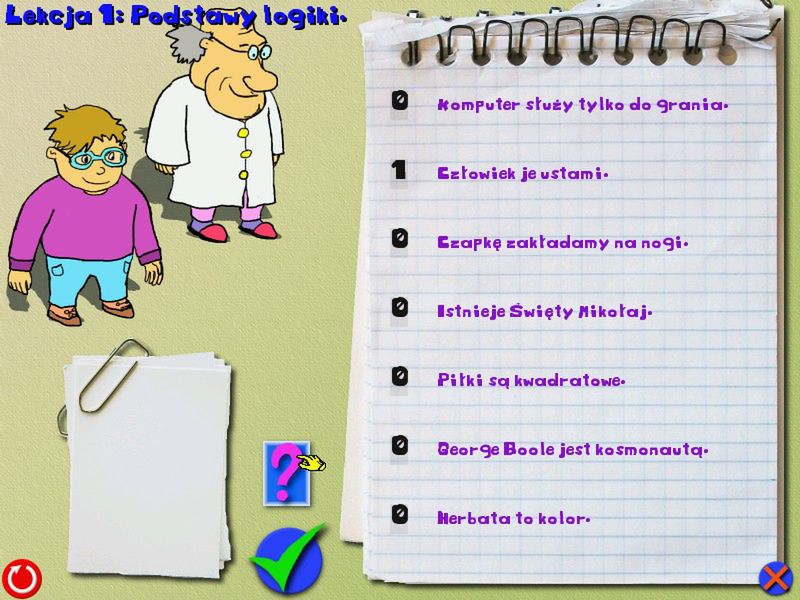 Lekcja 1: Podstawy logiki.
0 Komputer służy tylko do grania.
1 Człowiek je ustami.
0 Czapkę zakładamy na nogi.
0 Istnieje Święty Mikołaj.
0 Piłki są kwadratowe.
0 George Boole jest kosmonautą.
0 Herbata to kolor.
?